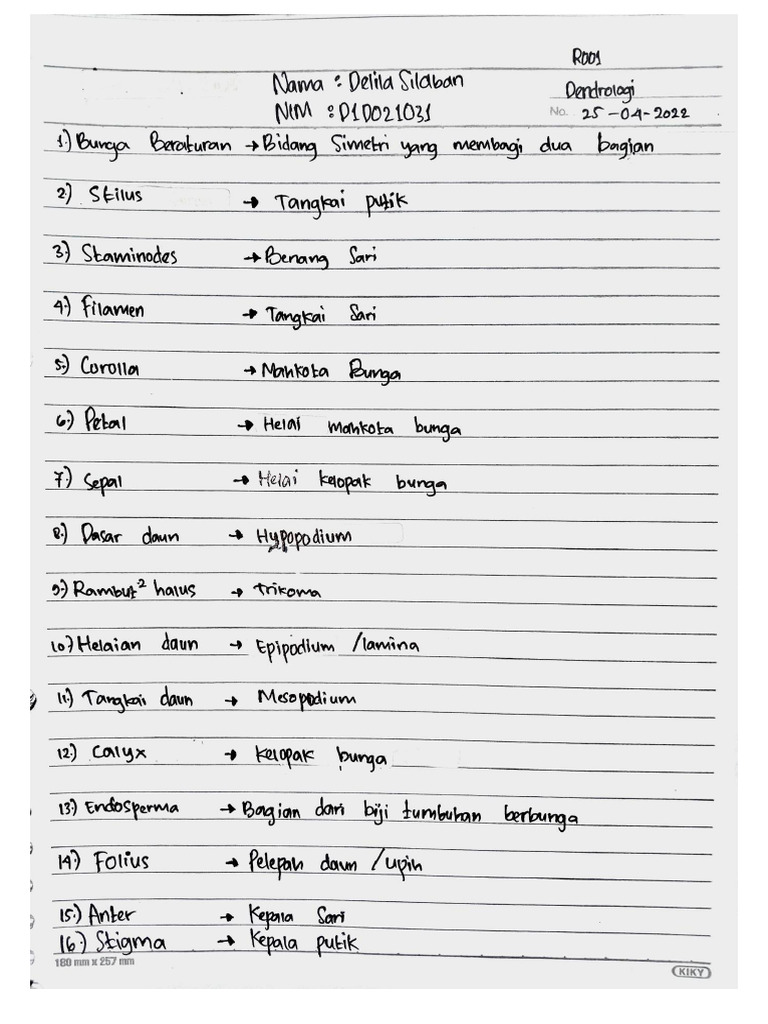 R001
Nama : Delila Silaban
Dendrologi
NIM : D1D021031
No. 25-04-2022
1.) Bunga Beraturan → Bidang Simetri yang membagi dua bagian
2.) Stilus → Tangkai putik
3.) Staminodes → Benang Sari
4.) Filamen → Tangkai Sari
5.) Corolla → Mahkota Bunga
6.) Petal → Helai mahkota bunga
7.) Sepal → Helai kelopak bunga
8.) Dasar daun → Hypopodium
9.) Rambut² halus → Trikoma
10.) Helaian daun → Epipodium /lamina
11.) Tangkai daun → Mesopodium
12.) Calyx → Kelopak bunga
13.) Endosperma → Bagian dari biji tumbuhan berbunga
14.) Folius → Pelepah daun /upih
15.) Anter → Kepala Sari
16.) Stigma → Kepala putik
180 mm x 257 mm
KIKY